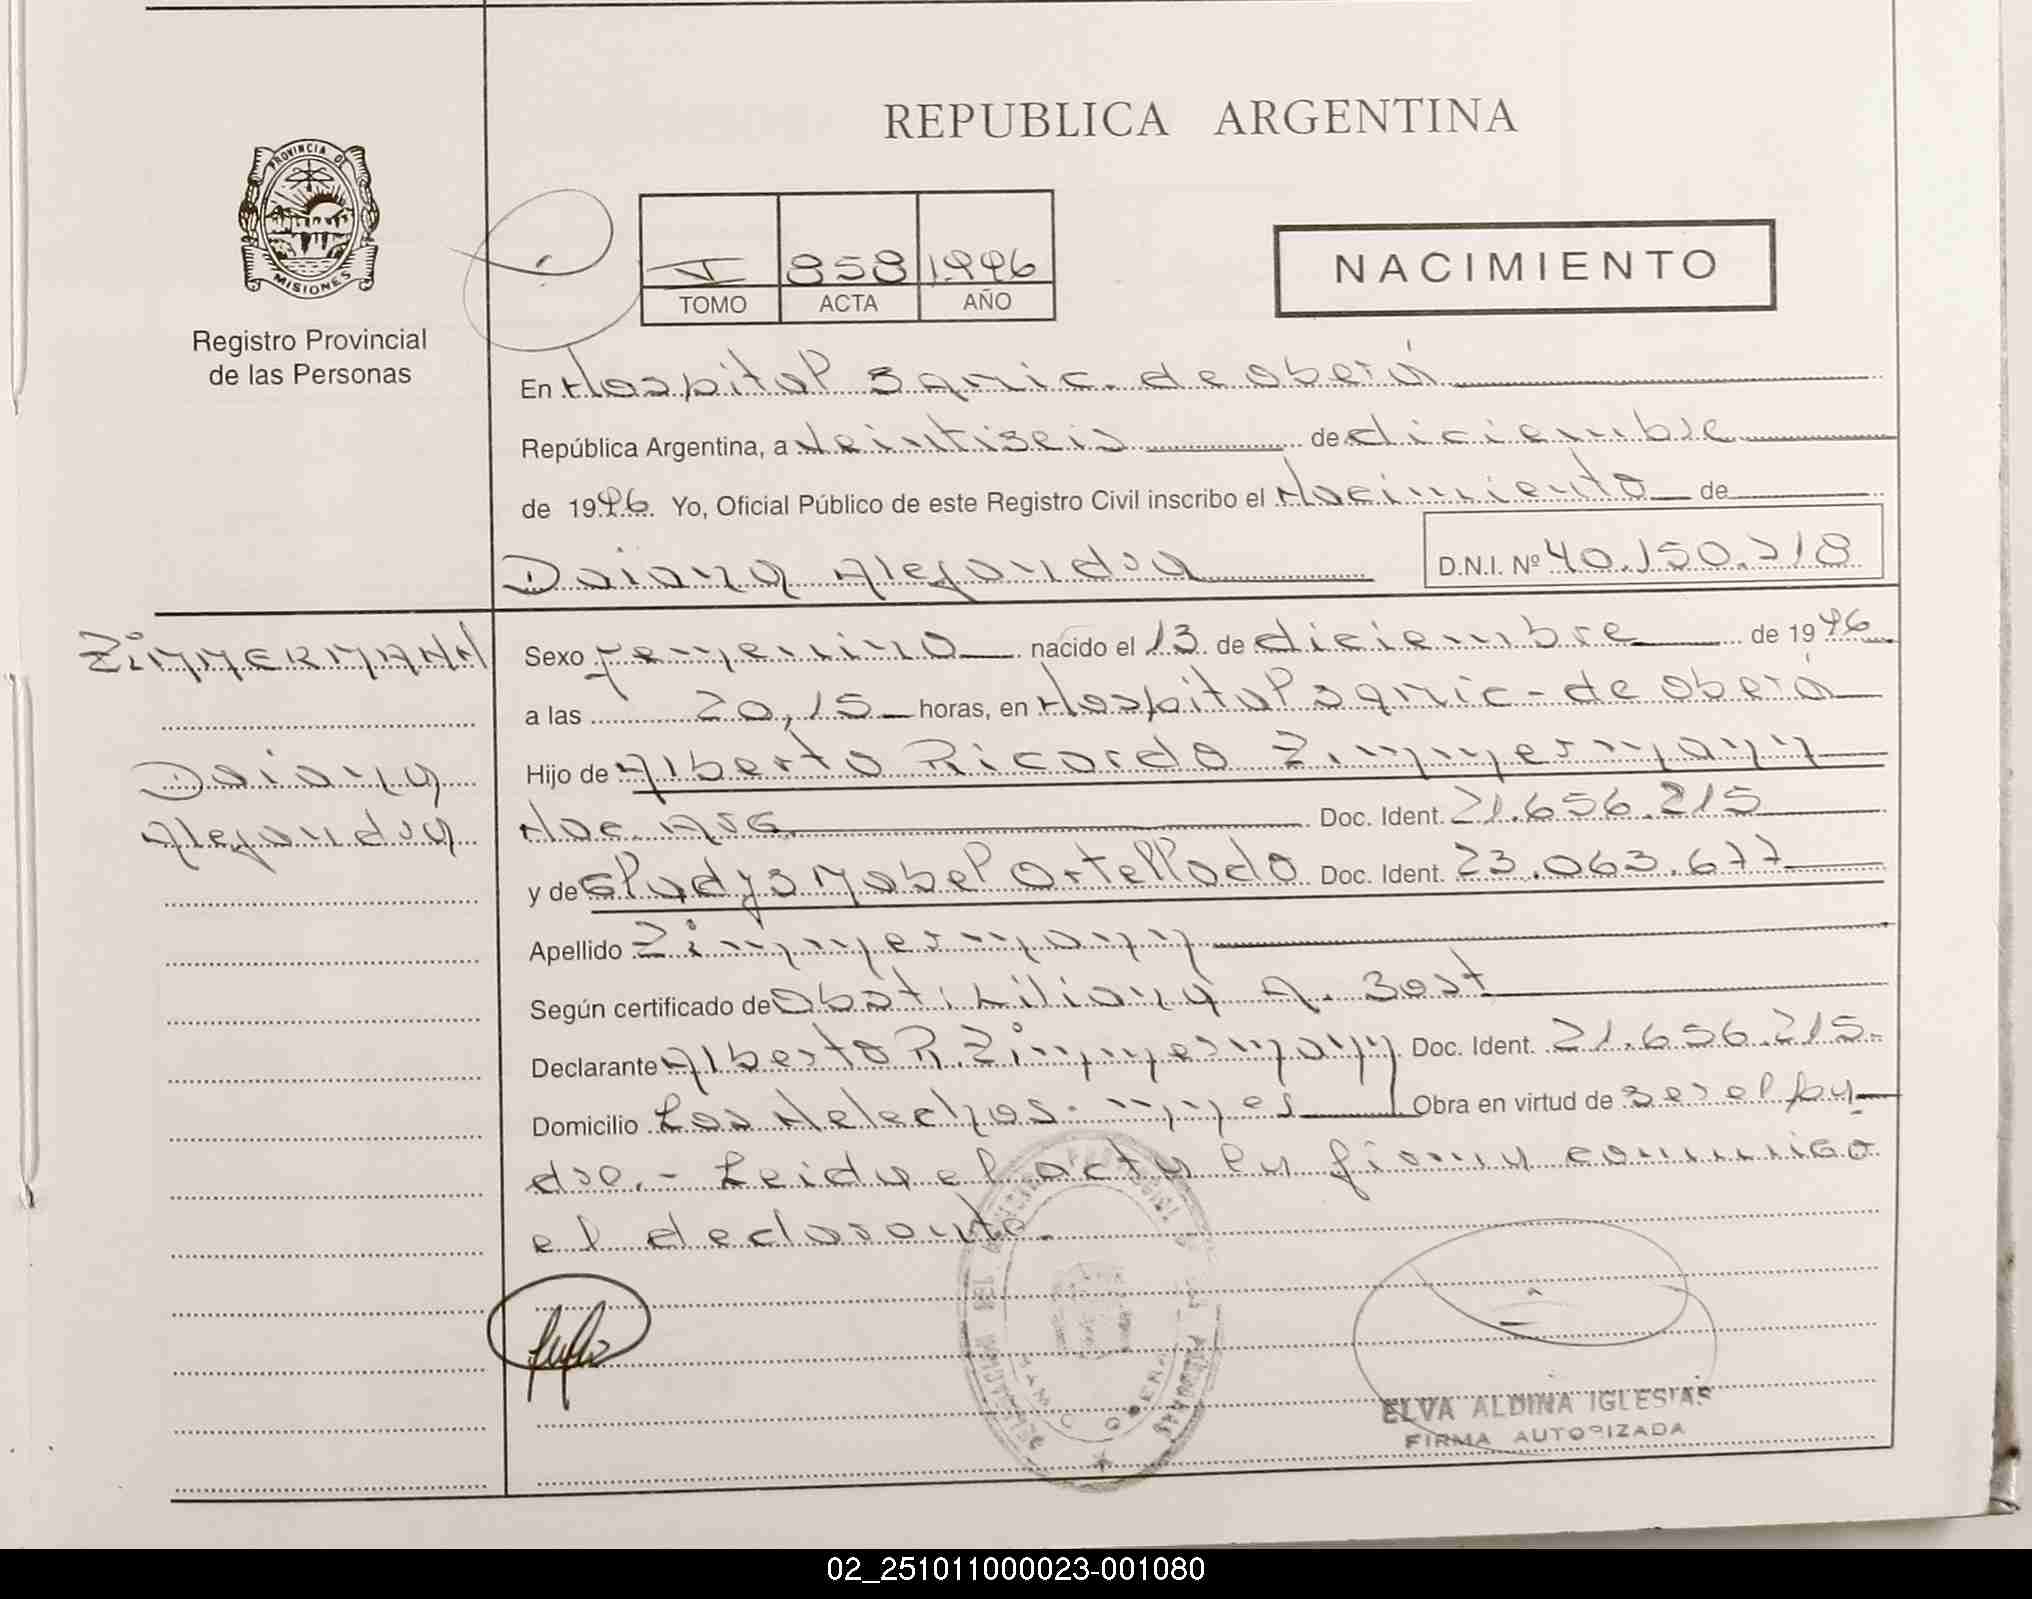 REPUBLICA ARGENTINA
PROVINCIA DE
MISIONES
Registro Provincial
de las Personas
I 858 1996
TOMO ACTA AÑO
NACIMIENTO
En Hospital Samic. de oberá
República Argentina, a Veintiseis de diciembre
de 1996. Yo, Oficial Público de este Registro Civil inscribo el Nacimiento de
Daiana Alejandra D.N.I. Nº 40.150.218
ZIMMERMANN
Daiana
Alejandra
Sexo femenino nacido el 13 de diciembre de 1996
a las 20,15 horas, en Hospital Samic - de oberá
Hijo de Alberto Ricardo Zimmermann
Nac. Arg Doc. Ident. 21.656.215
y de Gladys Mabel Ortellado Doc. Ident. 23.063.677
Apellido Zimmermann
Según certificado de Obst. Liliana A. Bost
Declarante Alberto R. Zimmermann Doc. Ident. 21.656.215.-
Domicilio Los Helechos. mnes Obra en virtud de ser el pa-
dre.- Leida el acta la firma conmigo
el declarante.
ELVA ALDINA IGLESIAS
FIRMA AUTORIZADA
02_251011000023-001080